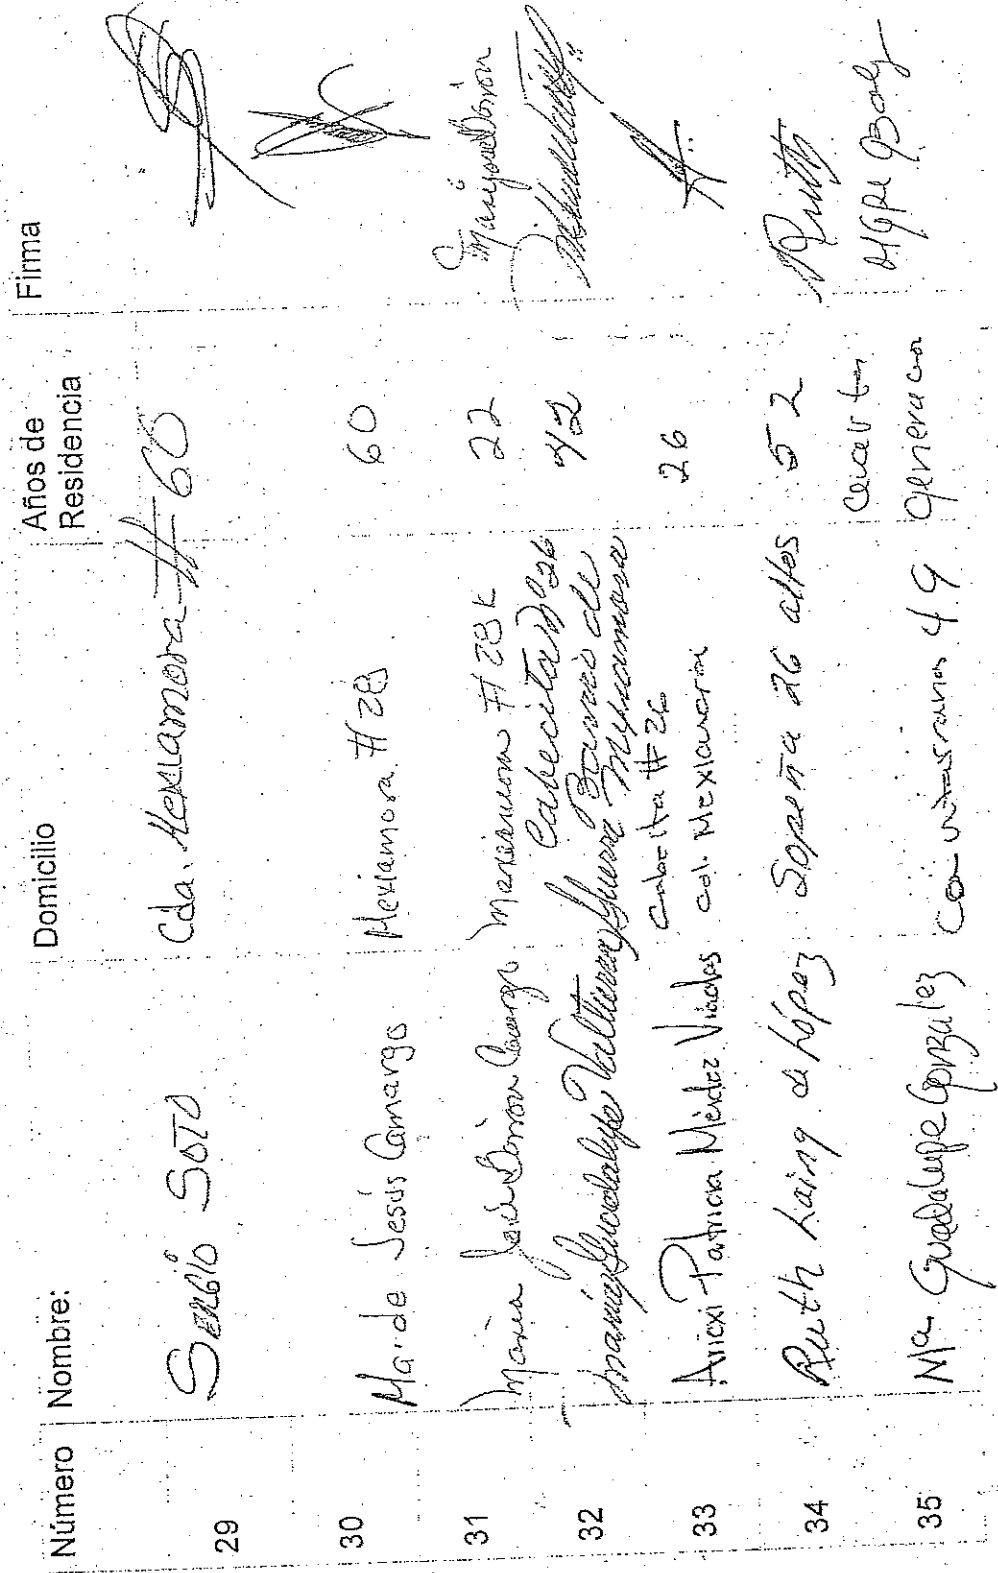 Número Nombre: Domicilio Años de Residencia Firma
29 Sergio Soto Cda. Mexiamora # 60
30 Ma. de Jesús Camargo Mexiamora #28 60
31 María José Barrón Camargo Mexiamora #28 K 22
32 María Guadalupe Valtierra Guerra Cabecita Nº 26 Barrio de Mexiamora 42
33 Anexi Patricia Méndez Cabecita #26 col. Mexiamora 26
34 Ruth Laing de López Sopeña 26 altos 52 Ruth
35 Ma. Guadalupe González 49 cuarta generacion